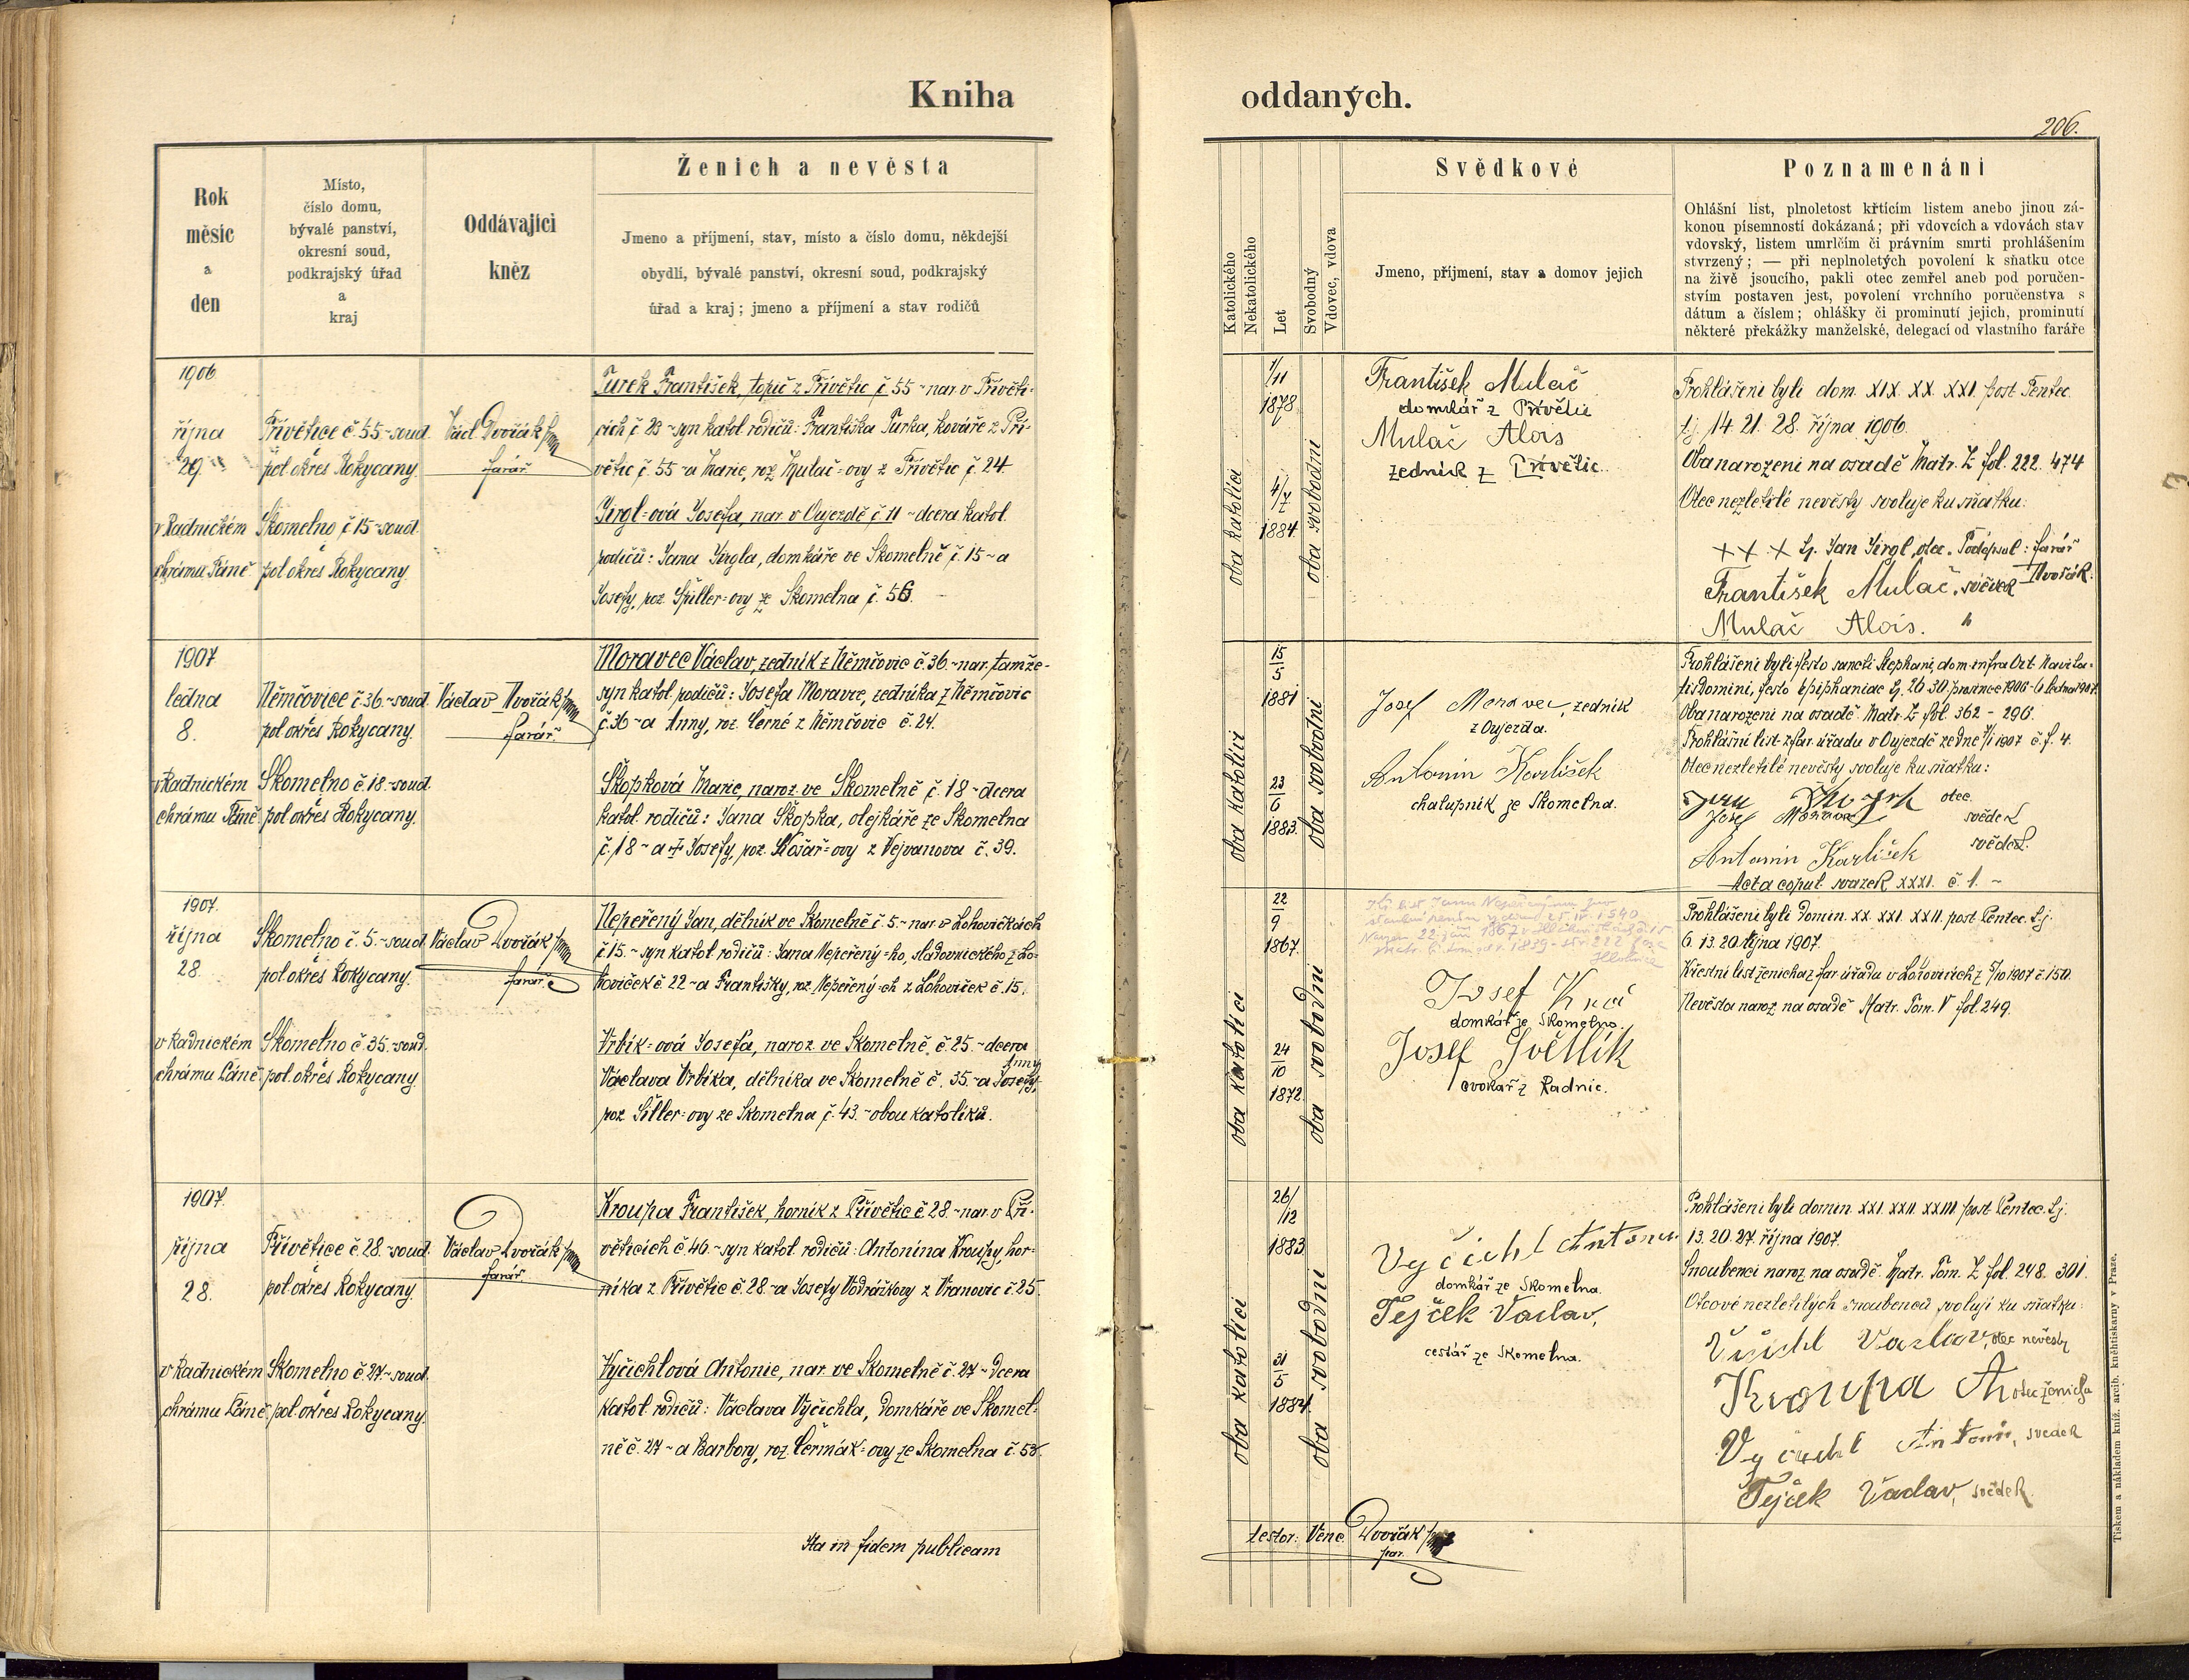 Kniha
Rok
měsíc
a
den
Místo,
číslo domu,
bývalé panství,
okresní soud,
podkrajský úřad
a
kraj
Oddávající
kněz
Ženich a nevěsta
Jmeno a příjmení, stav, místo a číslo domu, někdejší
obydlí, bývalé panství, okresní soud, podkrajský
úřad a kraj; jmeno a příjmení a stav rodičů
1906
října
29.
v Radnickém
chrámu Páně
Přívětice č. 55 - soud
pol. okres Rokycany.
Skomelno č. 15 - soud
pol. okres Rokycany
Václ. Dvořák
farář
Turek František, topič z Přívětic č. 55 - nar. v Přívěti=
cích č. 23 - syn katol. rodičů: Františka Turka, kováře z Pří-
větic č. 55 - a Marie, roz. Mulač=ovy z Přívětic č. 24.
Jirgl=ová Josefa, nar. v Oujezdě č. 11 - dcera katol.
rodičů: Jana Jirgla, domkáře ve Skomelně č. 15 - a
Josefy, roz. Špiller=ovy ze Skomelna č. 56.
1907
ledna
8.
v Radnickém
chrámu Páně
Němčovice č. 36 - soud
pol. okres Rokycany.
Skomelno č. 18 - soud
pol. okres Rokycany.
Václav Dvořák
farář.
Moravec Václav, zedník z Němčovic č. 36 - nar. tamže -
syn katol. rodičů: Josefa Moravce, zedníka z Němčovic
č. 36 - a Anny, roz. Černé z Němčovic č. 24.
Škopková Marie, naroz. ve Skomelně č. 18 - dcera
katol. rodičů: Jana Škopka, olejkáře ze Skomelna
č. 18 - a † Josefy, roz. Košař=ovy z Vejvanova č. 39.
1907.
října
28.
v Radnickém
chrámu Páně
Skomelno č. 5. - soud
pol. okres Rokycany.
Skomelno č. 35. - soud.
pol. okres Rokycany
Václav Dvořák
farář
Nepeřený Jan, dělník ve Skomelně č. 5. - nar. v Lohovičkách
č. 15. - syn katol. rodičů: Jana Nepeřený=ho, sladovnického z Lo-
hoviček č. 22 - a Františky, roz. Nepeřený=ch z Lohoviček č. 15.
Vrbík=ová Josefa, naroz. ve Skomelně č. 25. - dcera
Anny
Václava Vrbíka, dělníka ve Skomelně č. 35. - a Josefy,
roz. Šiller=ovy ze Skomelna č. 43. - obou katolíků.
1907.
října
28.
v Radnickém
chrámu Páně
Přívětice č. 28. - soud
pol. okres Rokycany.
Skomelno č. 27 - soud.
pol. okres Rokycany.
Václav Dvořák
farář
Kroupa František, horník z Přívětic č. 28. - nar. v Pří-
věticích č. 46. - syn katol. rodičů: Antonína Kroupy, hor=
níka z Přívětic č. 28. - a Josefy Vodrážkovy z Vranovic č. 25.
Vyčichlová Antonie, nar. ve Skomelně č. 27 - dcera
katol. rodičů: Václava Vyčichla, domkáře ve Skomel=
ně č. 27 - a Barbory, roz. Čermák=ovy ze Skomelna č. 53.
Ita in fidem publicam
oddaných.
206.
Katolického
Nekatolického
Let
Svobodný
Vdovec, vdova
Svědkové
Jmeno, příjmení, stav a domov jejich
Poznamenání
Ohlášní list, plnoletost křtícím listem anebo jinou zá-
konou písemností dokázaná; při vdovcích a vdovách stav
vdovský, listem umrlčím či právním smrti prohlášením
stvrzený; — při neplnoletých povolení k sňatku otce
na živě jsoucího, pakli otec zemřel aneb pod poručen-
stvím postaven jest, povolení vrchního poručenstva s
dátum a číslem; ohlášky či prominutí jejich, prominutí
některé překážky manželské, delegací od vlastního faráře
oba katolíci
1/11
1878
4/7
1884.
oba svobodni
František Mulač
domkář z Přívětic
Mulač Alois
zedník z Přívětic.
Prohlášeni byli dom. XIX. XX. XXI. post Pentec.
tj. 14. 21. 28. října 1906.
Oba narozeni na osadě Matr. Z fol. 222. 474
Otec nezletilé nevěsty svoluje ku sňatku:
+ + + tj. Jan Jirgl, otec. Podepsal: farář
Dvořák.
František Mulač, svědek
Mulač Alois. "
oba katolíci
15/5
1881
23/6
1883.
oba svobodni
Josef Moravec, zedník
z Oujezda.
Antonín Karlíšek
chalupník ze Skomelna.
Prohlášeni byli festo sancti Stephani, dom. infra Oct. Nativita=
tis Domini, festo Epiphaniae tj. 26. 30. prosince 1906 - 6. ledna 1907.
Oba narozeni na osadě Matr. Z fol. 362 - 296.
Prohlášní list z far. úřadu v Oujezdě ze dne 7/1 1907 č. f. 4.
Otec nezletilé nevěsty svoluje ku sňatku:
otec.
Josef Moravec svědek
Antonín Karlíšek svědek.
Acta copul. svazek XXXI. č. 1. -
oba katolíci
22/9
1867.
24/10
1872.
oba svobodni
Josef
domkář ze Skomelna.
Josef Světlík
cvokař z Radnic.
Prohlášeni byli domin. XX. XXI. XXII. post Pentec. t.j.
6. 13. 20. října 1907.
Křestní list ženicha z far. úřadu v Lohovicích z 5/10 1907 č. 150.
Nevěsta naroz. na osadě Matr. Tom. V fol. 249.
oba katolíci
26/12
1883
31/5
1884.
oba svobodni
Vyčichl Antonín
domkář ze Skomelna.
Tejček Vaclav,
cestář ze Skomelna.
Prohlášeni byli domin. XXI. XXII. XXIII post Pentec. t.j.
13. 20. 27. října 1907.
Snoubenci naroz. na osadě. Matr. Tom. Z fol. 248. 301.
Otcové nezletilých snoubenců svolují ku sňatku:
Vičichl Vaclav, otec nevěsty
Kroupa A otec ženicha
Vyčichl Antonín, svědek
Tejček Vaclav, svědek.
testor: Venc. Dvořák
far.
Tiskem a nákladem kníž. arcib. knihtiskarny v Praze.